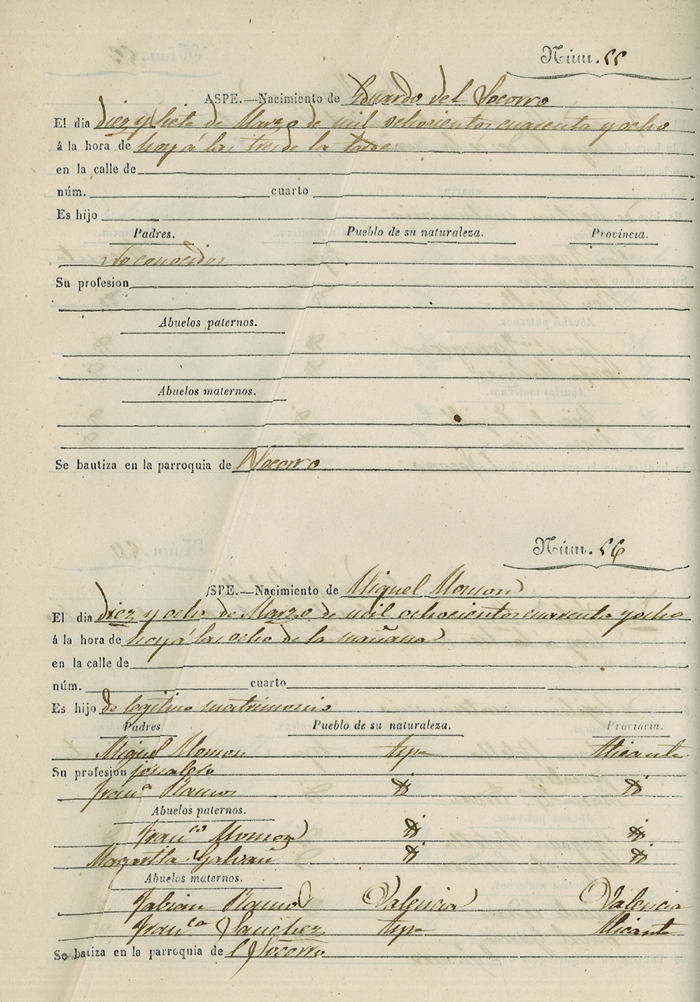 Núm. 55
ASPE.—Nacimiento de Eduardo del Socorro
El dia diez y siete de Marzo de mil ochocientos cuarenta y ocho
á la hora de hoy á las tres de la tarde
en la calle de
núm. cuarto
Es hijo
Padres. Pueblo de su naturaleza. Provincia.
No conocidos
Su profesion
Abuelos paternos.
Abuelos maternos.
Se bautiza en la parroquia de Socorro
Núm. 56
ASPE.—Nacimiento de Miguel
El dia diez y ocho de Marzo de mil ochocientos cuarenta y ocho
á la hora de hoy á las ocho de la mañana
en la calle de
núm. cuarto
Es hijo de legitimo matrimonio
Padres Pueblo de su naturaleza. Provincia.
Miguel Aspe Alicante
Su profesion jornalero
Franca Ramos
Abuelos paternos.
Franco
Margarita Galvañ
Abuelos maternos.
Fabian Ramos Valencia Valencia
Franca Sanchez Aspe Alicante
Se batiza en la parroquia de l Socorro